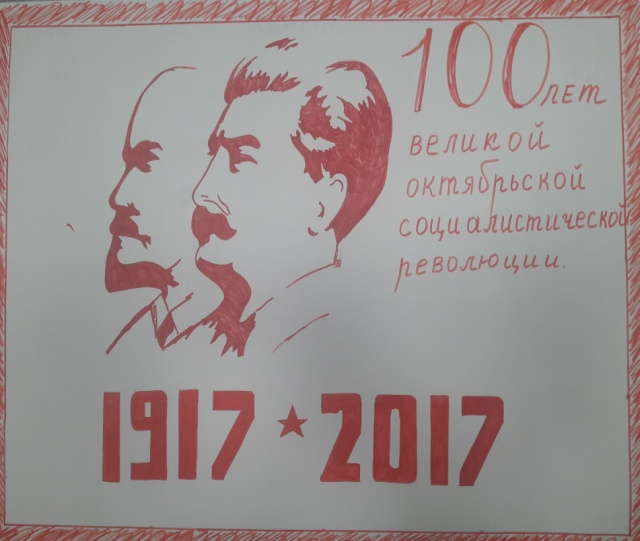 100 лет
великой
октябрьской
социалистической
революции.
1917 ★ 2017